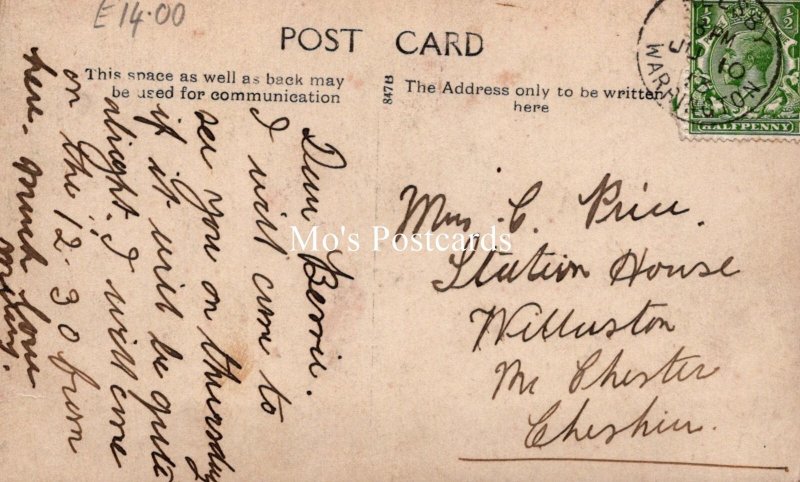 £14.00
POST CARD
This space as well as back may
be used for communication
847B
The Address only to be written
here
Dear Bessie.
I will come to
see you on thursday
if it will be quite
alright. I will come
on the 12.30 from
here. much love
Mrs. C. Price.
Station House
Willaston
Nr Chester
Cheshire.
Mo's Postcards
HALFPENNY